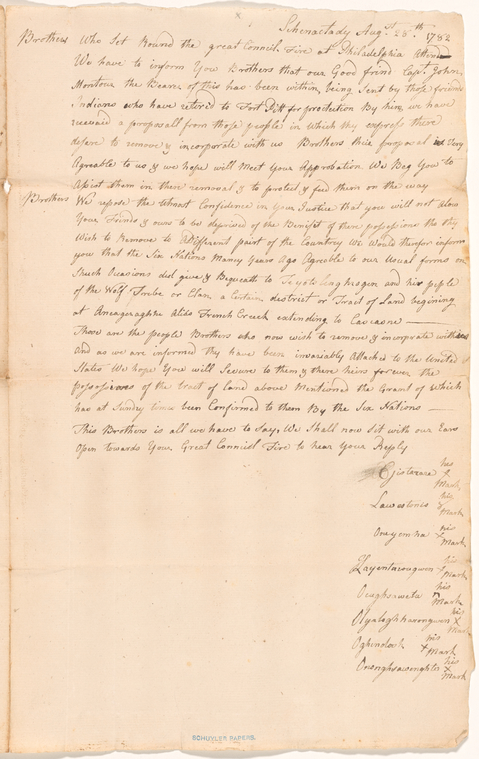 Schenactady Augt. 28th 1782
Brothers Who Set Round the great Council Fire at Philadelphia Attend
We have to inform You Brothers that our Good frind Capt. John
Montour the Bearer of this has been within, being Sent by those friends
Indians who have retired to Fort Pitt for protection By him we have
received a proposall from those people in which they express there
desire to remove & incorporate with us Brothers this proposal is Very
Agreable to us & we hope will Meet Your Approbation We Beg You to
Assist them in there removal & to protect & feed them on the way
Brothers We repose the Utmost Confidence in Your Justice that you will not allow
Your Frinds & ours to be deprived of the Benifet of there possessions tho they
Wish to Remove to a Different part of the Country We Would therefor inform
you that the Six Nations Maney Years Ago Agreable to our Usual forms on
Such Ocasions did give & Bequeath to and his people
of the Wolf Tribe or Clan a Certain district or Tract of Land begining
at Alias French Creek extending to
These are the people Brothers who now wish to remove & incorporate with us
And as we are informed they have been invariably Attached to the United
States We hope You will Secure to them & there heirs forever the
possessions of the tract of land above Mentioned the Grant of Which
has at Sundry times been Confirmed to them By the Six Nations
This Brothers is all we have to Say, We Shall now Sit with our Ears
Open towards Your Great Council Fire to hear Your Reply
his x Mark
his x Mark
Orayemha his x Mark
his x Mark
his Mark
his x Mark
his x Mark
his x Mark
SCHUYLER PAPERS.